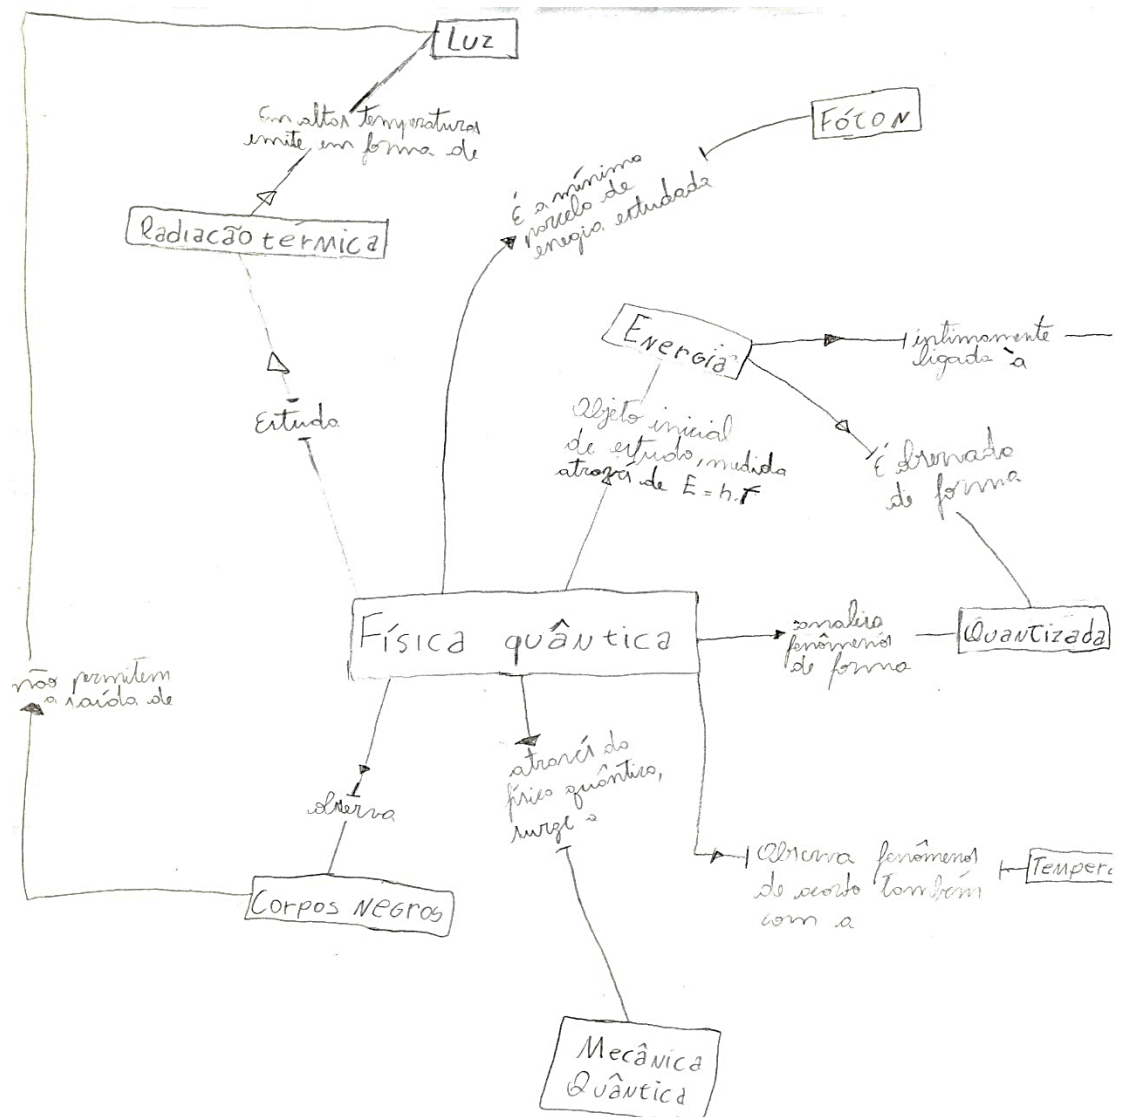 Luz
Em altas temperaturas
emite em forma de
Fóton
É a mínima
parcela de
enegia estudada
Radiação térmica
Energia
intimamente
ligada à
Objeto inicial
de estudo, medida
através de E = h.f
Estuda
É observada
de forma
Física quântica
analisa
fenômenos
de forma
Quantizada
não permitem
a saída de
através da
física quântica,
surge a
observa
Observa fenômenos
de acordo também
com a
Temper
Corpos negros
Mecânica
Quântica